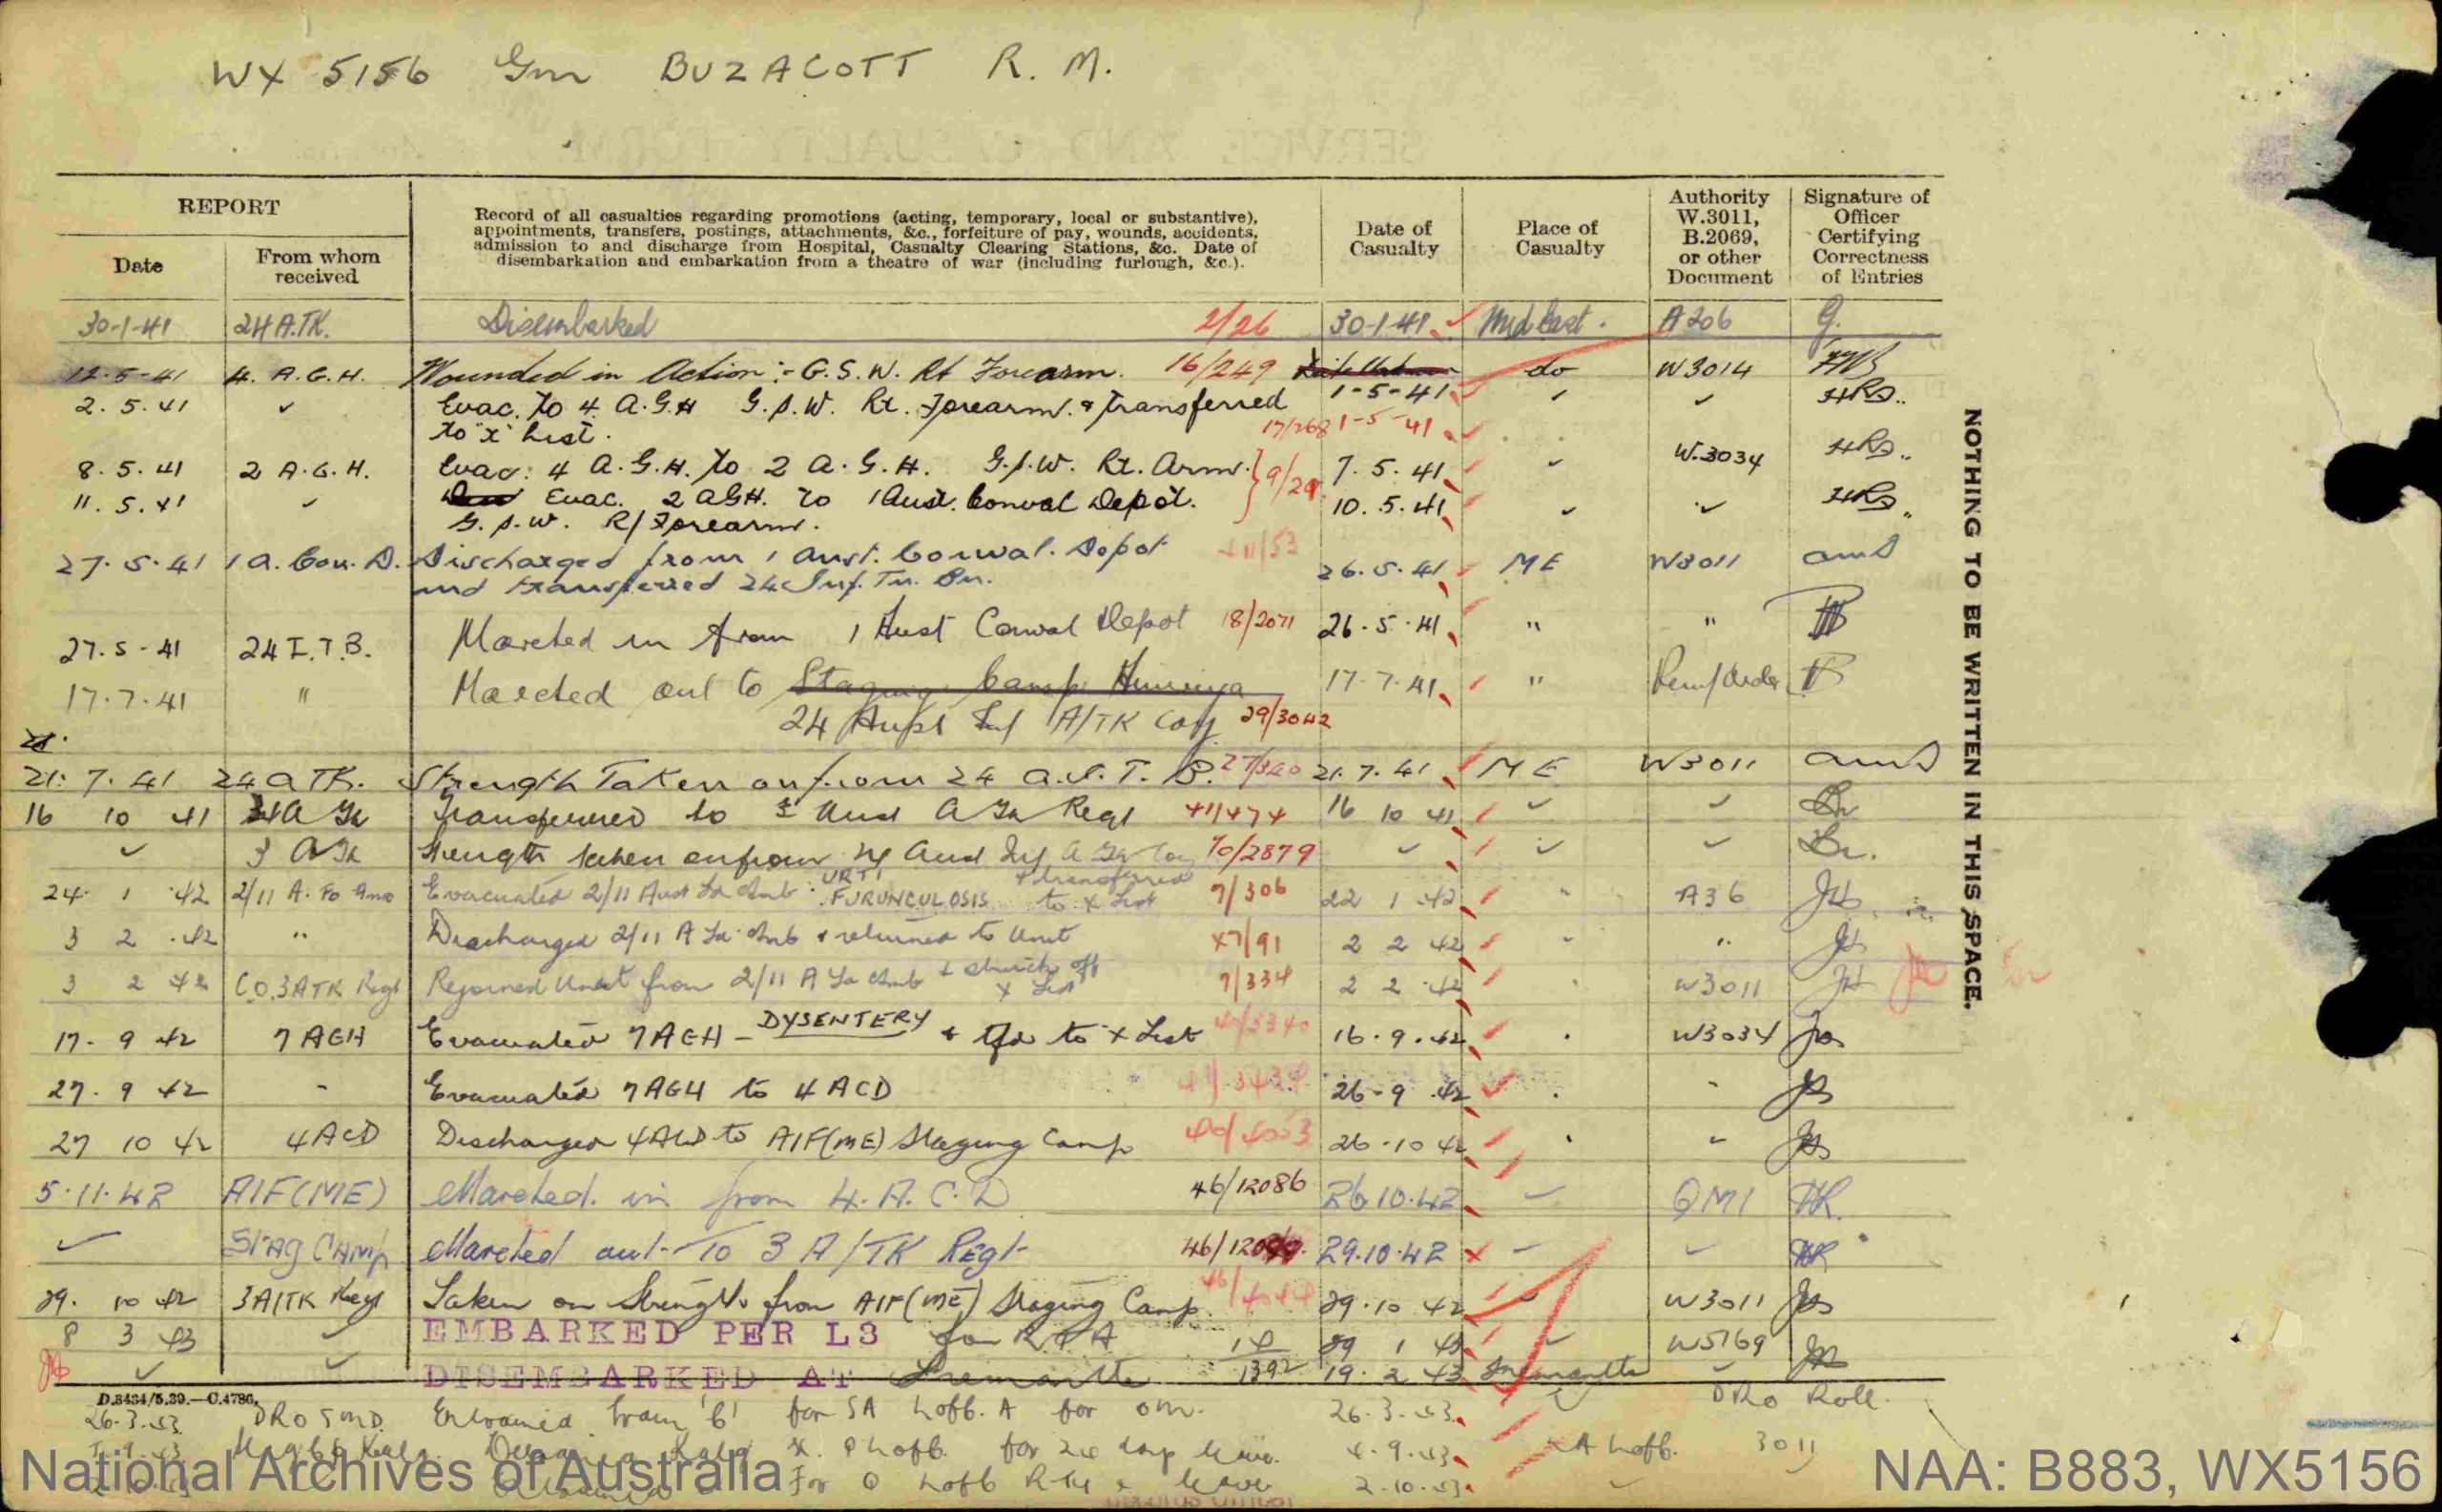 WX 5156 Gnr BUZACOTT R. M.
REPORT
Date
From whom received
Record of all casualties regarding promotions (acting, temporary, local or substantive),
appointments, transfers, postings, attachments, &c., forfeiture of pay, wounds, accidents,
admission to and discharge from Hospital, Casualty Clearing Stations, &c. Date of
disembarkation and embarkation from a theatre of war (including furlough, &c.).
Date of Casualty
Place of Casualty
Authority W.3011, B.2069, or other Document
Signature of Officer Certifying Correctness of Entries
30-1-41 24 A.TK. Disembarked 2/26 30-1-41 Mid East. A206
12-5-41 4. A.G.H. Wounded in Action :- G.S.W. Rt Forearm. 16/249 1-5-41 do W3014
2. 5. 41 Evac. to 4 A.G.H G.S.W. Rt. Forearm. & transferred
to "X" List. 17/268 1-5-41
8. 5. 41 2 A.G.H. Evac: 4 A.G.H. to 2 A.G.H. G.S.W. Rt. Arm. 9/29 7. 5. 41 W.3034
11. 5. 41 Evac. 2 AGH. to 1 Aust. Conval Depot. 10. 5. 41
G.S.W. R/Forearm.
27. 5. 41 1 A. Con. D. Discharged from 1 Aust. Conval. Depot 26. 5. 41 ME W3011
and transferred 24 Inf. Tn. Bn.
27. 5 - 41 24 I.T.B. Marched in from 1 Aust Conval Depot 18/2071 26. 5. 41 " "
17. 7. 41 " Marched out to Staging Camp 17-7-41 "
24 Aust Inf A/TK Coy 29/3042
21. 7. 41 24 A TK. Strength Taken on from 24 A.I.T.B. 27/340 21. 7. 41 ME W3011
16 10 41 24 A Tk Transferred to 3 Aust A Tk Regt 41/474 16 10 41
3 A Tk Strength taken on from 24 Aust Inf A Tk Coy 70/2879
24. 1 42 2/11 A. Fd Amb Evacuated 2/11 Aust Fd Amb: URTI FURUNCULOSIS & transferred to X List 7/306 22 1 42 A36
3 2 42 " Discharged 2/11 A Fd Amb & returned to Unit 47/91 2 2 42 "
3 2 42 C.O. 3 ATK Regt Rejoined Unit from 2/11 A Fd Amb & struck off X List 7/334 2 2 42 W3011
17. 9 42 7 AGH Evacuated 7 AGH - DYSENTERY & Tfd to X List 16. 9. 42 W3034
27. 9 42 Evacuated 7 AGH to 4 ACD 26-9 42
27 10 42 4 ACD Discharged 4 ACD to AIF(ME) Staging Camp 26-10 42
5. 11. 42 AIF(ME) Marched in from 4. A.C.D 46/12086 26 10. 42
STAG CAMP Marched out to 3 A/TK Regt 29. 10. 42
29. 10 42 3 A/TK Regt Taken on Strength from AIF(ME) Staging Camp 29. 10 42 W3011
8 3 43 EMBARKED PER L3 29 1 43 W5769
DISEMBARKED AT Fremantle 1392 19. 2 43 Fremantle
D.8434/5.39.—C.4786.
26.3.43 Entrained train 'B' for SA for 26.3.43 Roll.
for 24 day leave 4.9.43 3011
For leave 2.10.43
NOTHING TO BE WRITTEN IN THIS SPACE.
National Archives of Australia
NAA: B883, WX5156